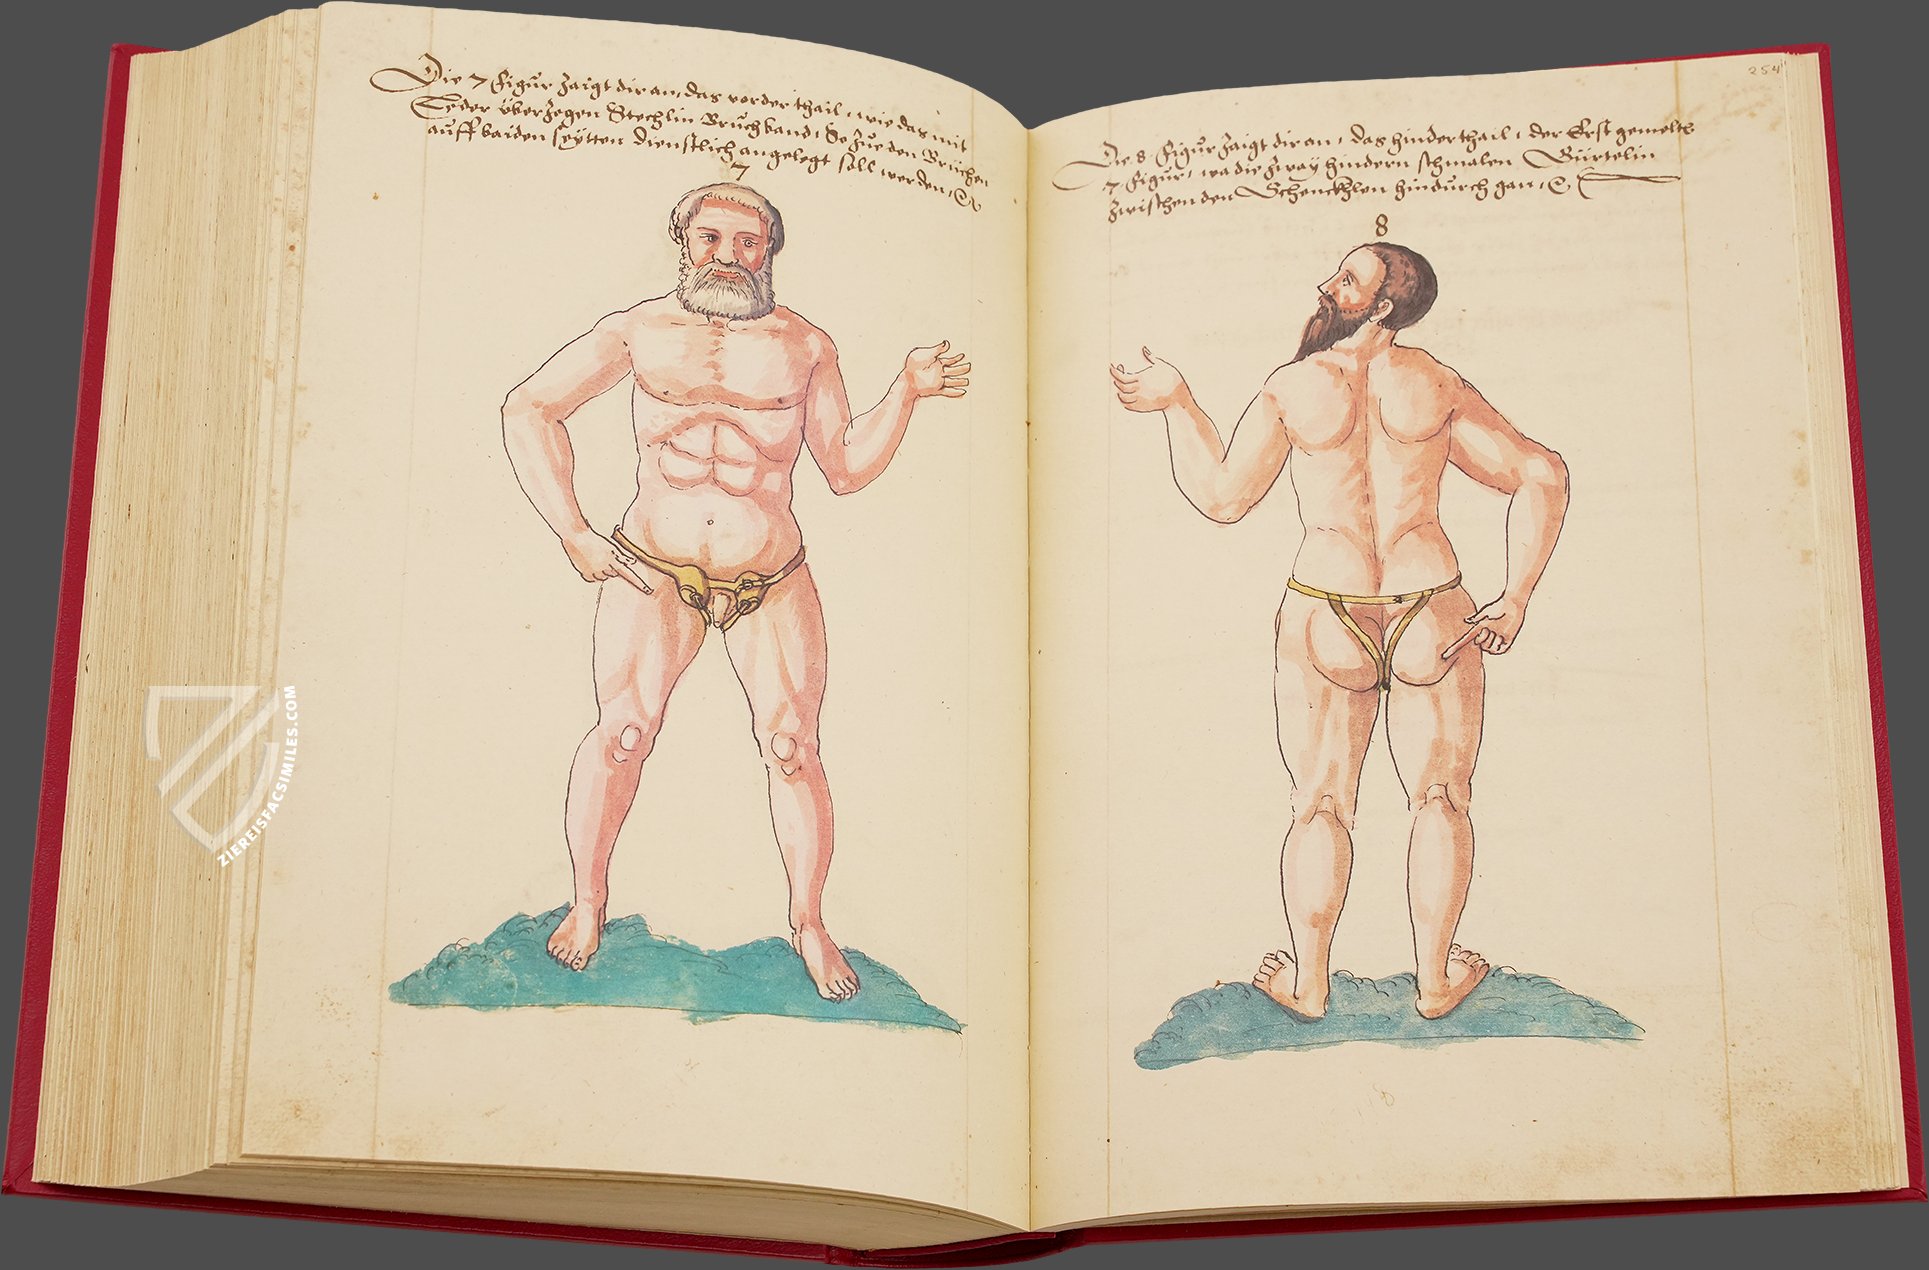 Die 7 Figur zaigt dir an, das vorder thail, wie das mit
Leder überzogen Stechlin Bruchband, So zue den Brüchen
auff baiden seytten dienstlich angelegt soll werden, &
7
254
Die 8 Figur zaigt dir an, das hinderthail, der Erst gemelte
7 Figur, wa die zway hindern schmalen Gürtelin
zwischen den Schenckhlen hindurch gan, &
8
ZIEREISFACSIMILES.COM